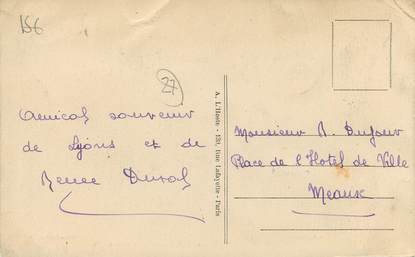 156
27
Amical souvenir
de Lyons et de
Renée Duval
A. L'Hoste - 139, Rue Lafayette - Paris
Monsieur R. Dufour
Place de l'Hotel de Ville
Meaux